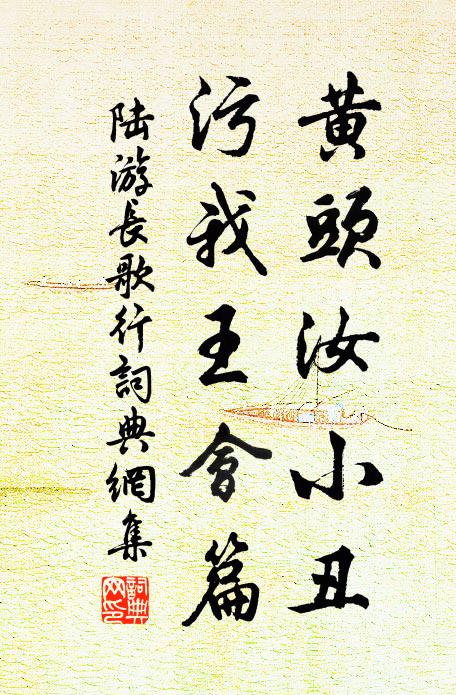 黄頭汝小丑
污我王會篇
陆游長歌行詞典網集
詞典网印